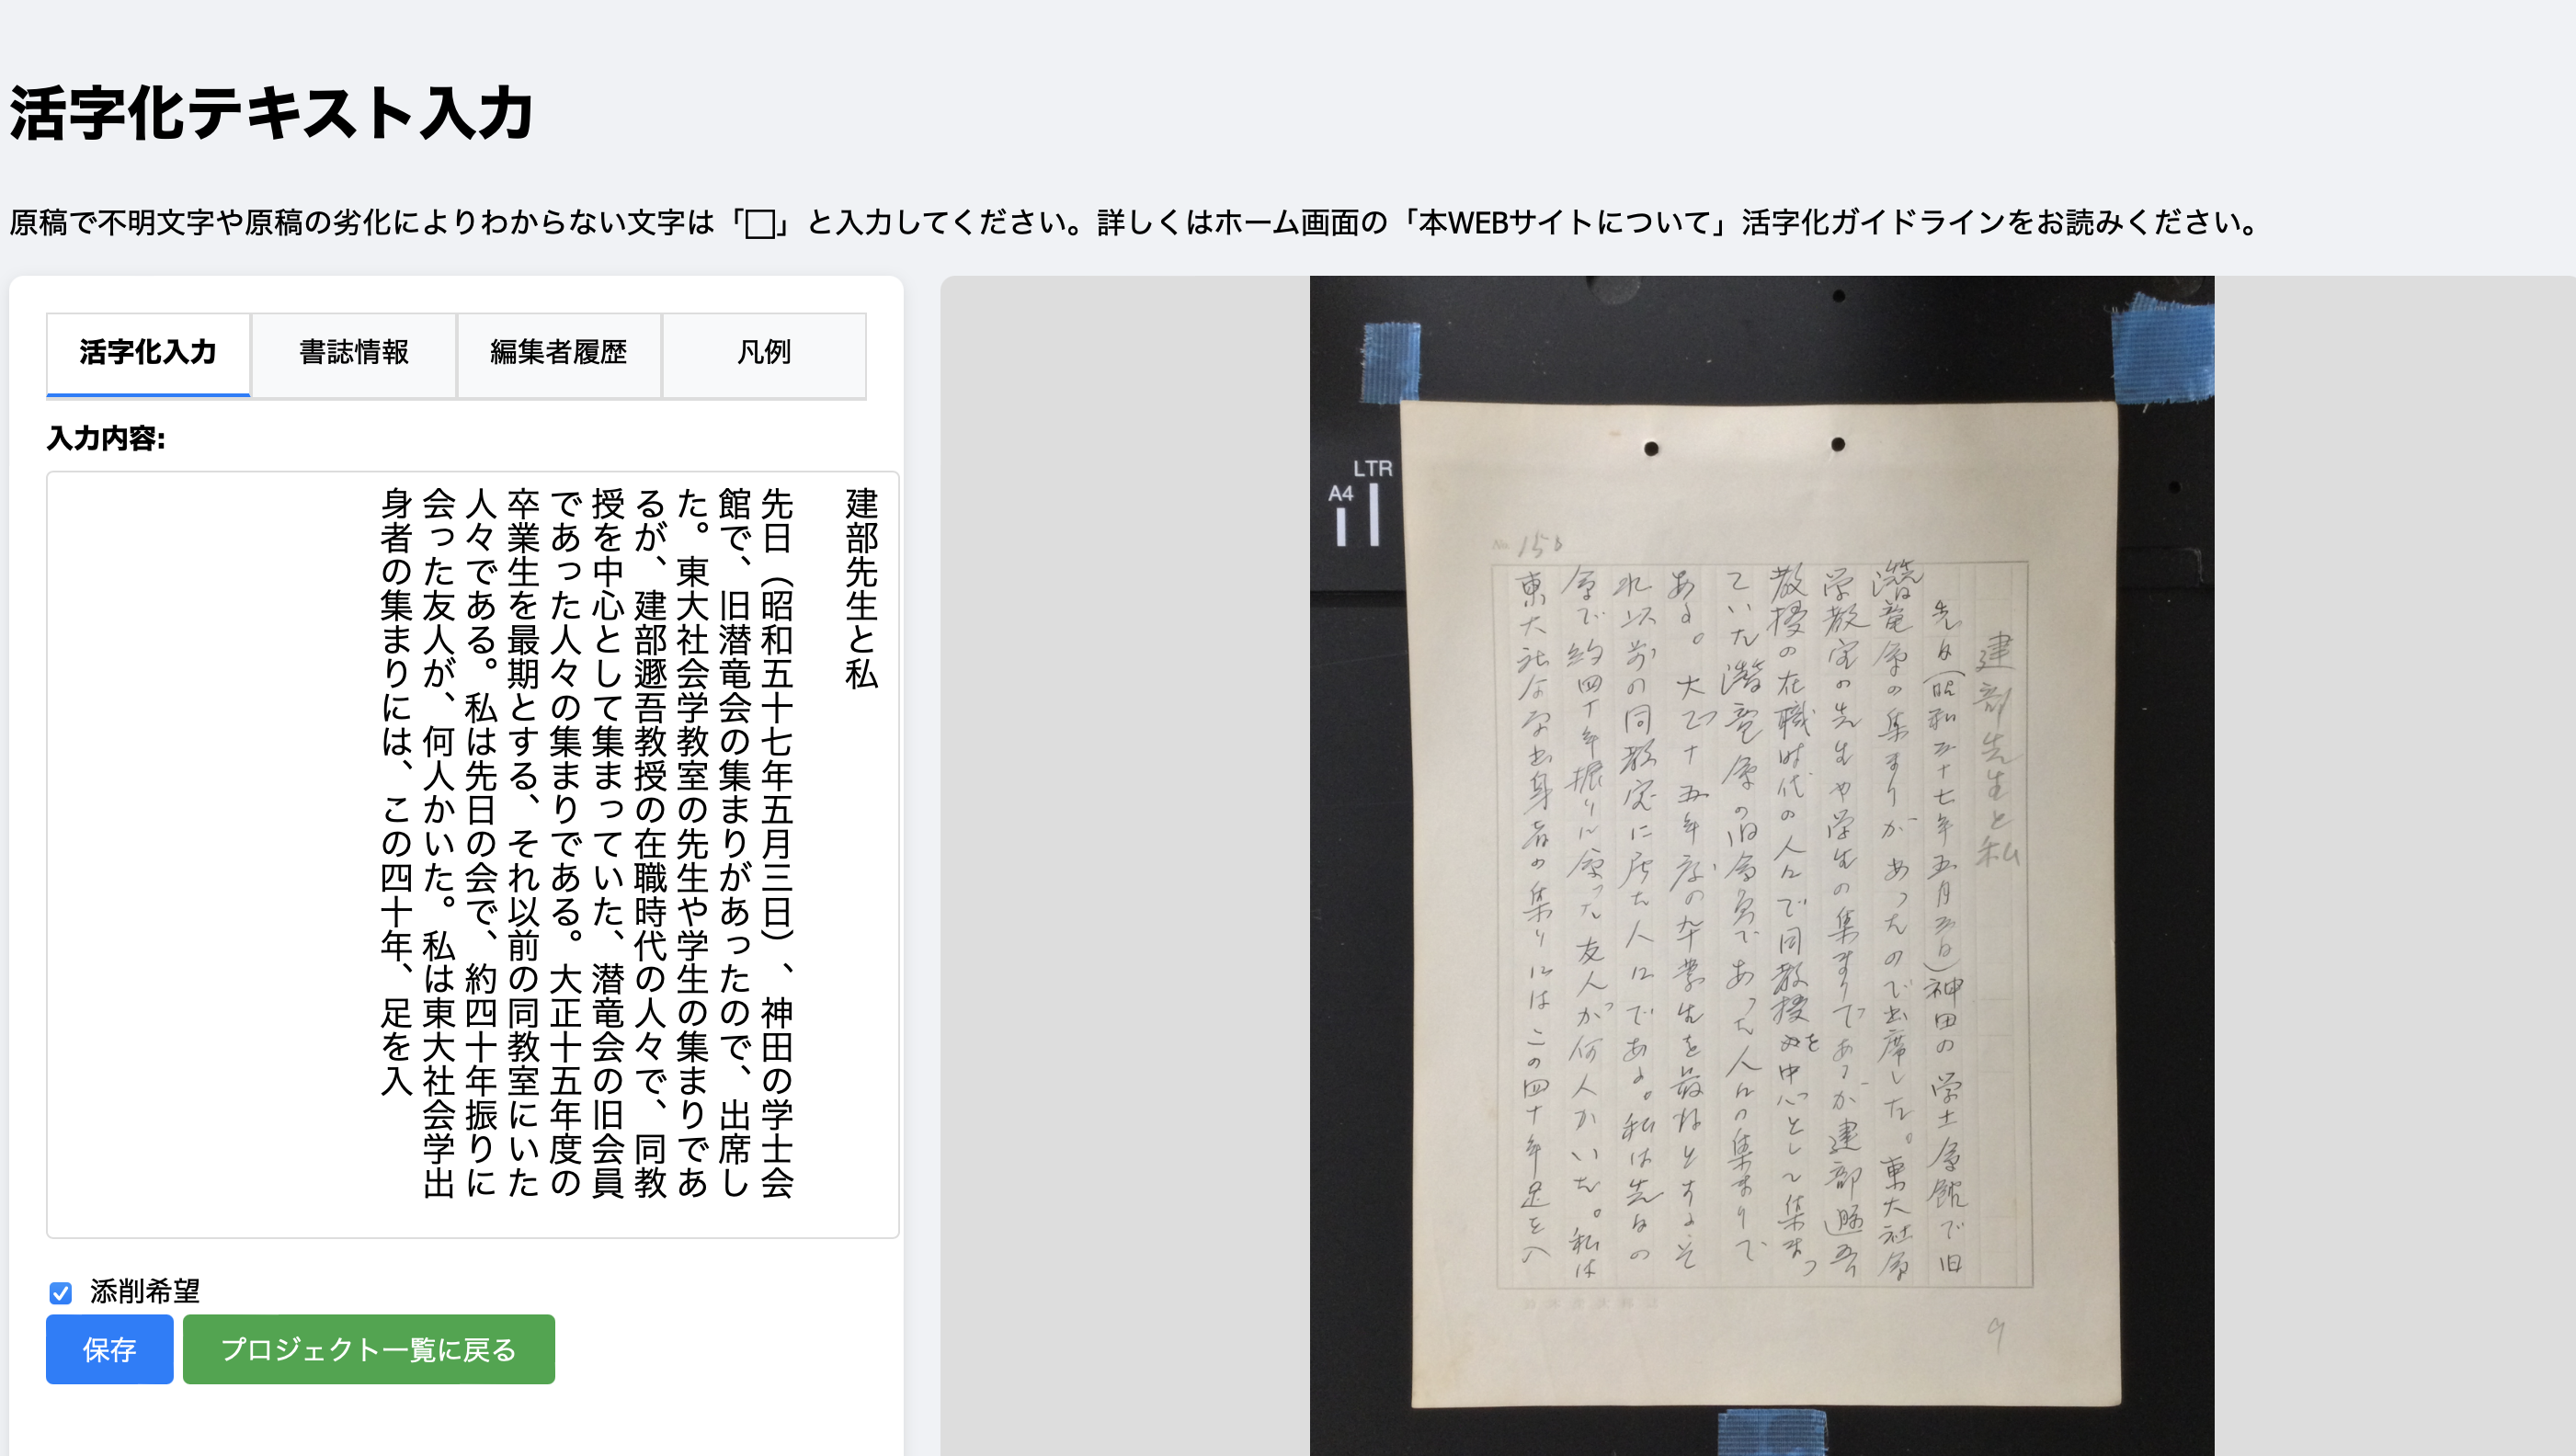 活字化テキスト入力
原稿で不明文字や原稿の劣化によりわからない文字は「□」と入力してください。詳しくはホーム画面の「本WEBサイトについて」活字化ガイドラインをお読みください。
活字化入力
書誌情報
編集者履歴
凡例
入力内容:
建部先生と私
先日（昭和五十七年五月三日）、神田の学士会
館で、旧潜竜会の集まりがあったので、出席し
た。東大社会学教室の先生や学生の集まりであ
るが、建部遯吾教授の在職時代の人々で、同教
授を中心として集まっていた、潜竜会の旧会員
であった人々の集まりである。大正十五年度の
卒業生を最期とする、それ以前の同教室にいた
人々である。私は先日の会で、約四十年振りに
会った友人が、何人かいた。私は東大社会学出
身者の集まりには、この四十年、足を入
添削希望
保存
プロジェクト一覧に戻る
LTR
A4
No 156
建部先生と私
先日(昭和五十七年五月三日)神田の学士会館で旧
潜竜会の集まりがあったので出席した。東大社会
学教室の先生や学生の集まりであるが建部遯吾
教授の在職時代の人々で同教授を中心として集まっ
ていた潜竜会の旧会員であった人々の集まりで
ある。大正十五年度の卒業生を最期とするそ
れ以前の同教室に居た人々である。私は先日の
会で約四十年振りに会った友人が何人かいた。私は
東大社会学出身者の集りにはこの四十年足を入
9